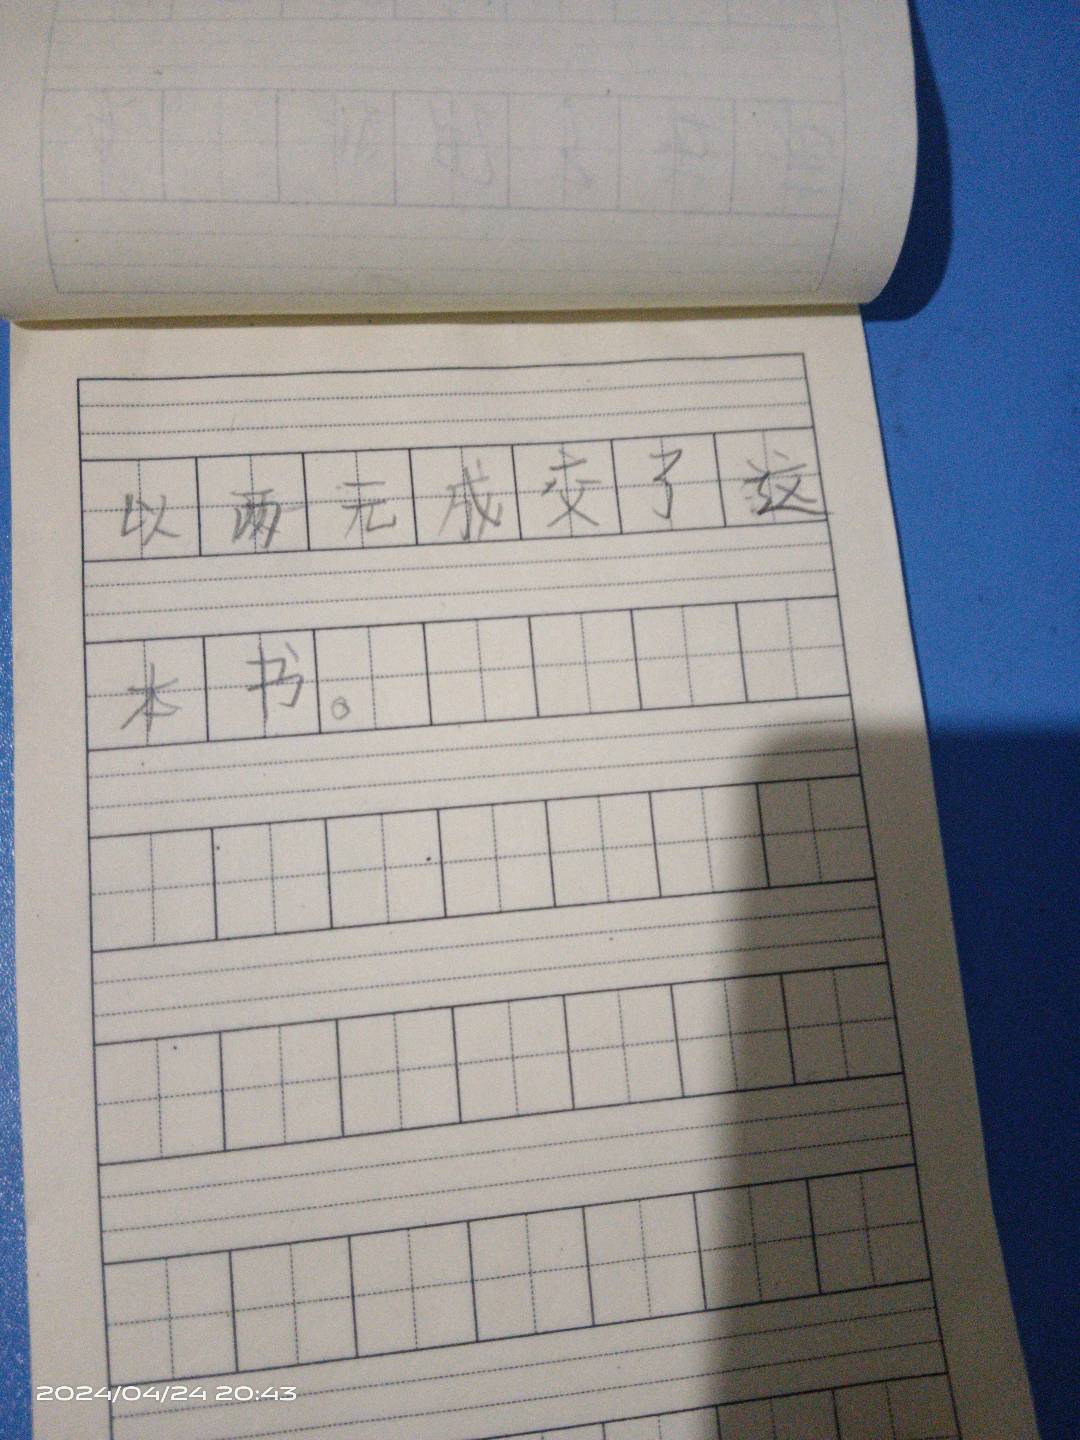 以两元成交了这
本书。
2024/04/24 20:43